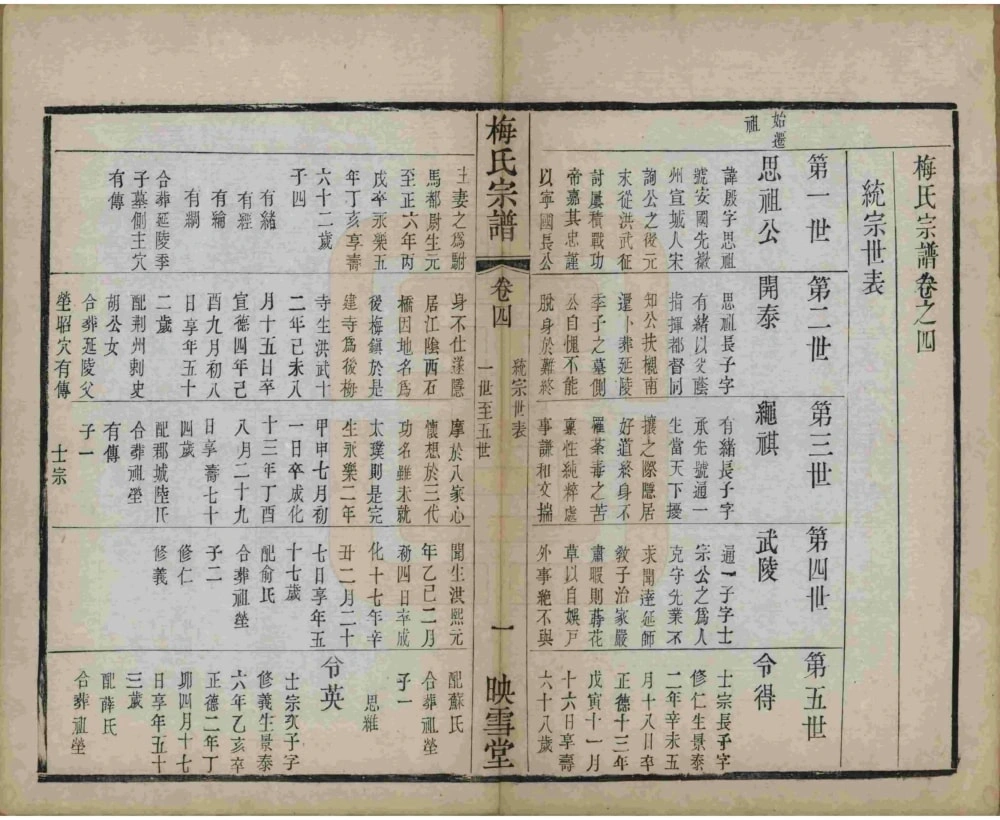 梅氏宗譜卷之四
統宗世表
始遷
祖
第一世
思祖公
諱殷字思祖
號安國先徽
州宣城人宋
詢公之後元
末從洪武征
討屢積戰功
帝嘉其忠謹
以寧國長公
主妻之爲駙
馬都尉生元
至正六年丙
戌卒永樂五
年丁亥享壽
六十二歲
子四
有緒
有經
有綸
有綱
合葬延陵季
子墓側主穴
有傳
第二世
開泰
思祖長子字
有緒以父蔭
指揮都督同
知公扶櫬南
還卜葬延陵
季子之墓側
公自愧不能
脫身於難終
身不仕遂隱
居江陰西石
橋因地名爲
後梅鎮於是
建寺爲後梅
寺生洪武十
二年己未八
月十五日卒
宣德四年己
酉九月初八
日享年五十
二歲
配荆州刺史
胡公女
合葬延陵父
塋昭穴有傳
第三世
繩祺
有緒長子字
承先號通一
生當天下擾
攘之際隱居
好道終身不
羅荼毒之苦
稟性純粹處
事謙和文揣
摩於八家心
懷想於三代
功名雖未就
太璞則是完
生永樂二年
甲申七月初
一日卒成化
十三年丁酉
八月二十九
日享壽七十
四歲
配郡城陸氏
合葬祖塋
有傳
子一
士宗
第四世
武陵
通一子字士
宗公之爲人
克守先業不
求聞達延師
敎子治家嚴
肅暇則蒔花
草以自娛戶
外事絶不與
聞生洪熙元
年乙巳二月
初四日卒成
化十七年辛
丑二月二十
七日享年五
十七歲
配俞氏
合葬祖塋
子二
修仁
修義
第五世
令得
士宗長子字
修仁生景泰
二年辛未五
月十八日卒
正德十三年
戊寅十一月
十六日享壽
六十八歲
配蘇氏
合葬祖塋
子一
思雅
令英
士宗次子字
修義生景泰
六年乙亥卒
正德二年丁
卯四月十七
日享年五十
三歲
配薛氏
合葬祖塋
梅氏宗譜
卷四
統宗世表
一世至五世
一
映雪堂